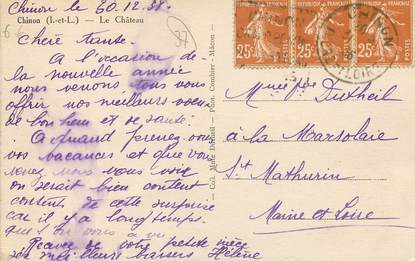 Chinon le 30.12.38.
Chinon (I.-et-L.) — Le Château
37
Chère tante.
A l'occasion de
la nouvelle année
nous venons tous vous
offrir nos meilleurs voeux
de bonheur et de santé.
A quand prenez vous
vos vacances et que vous
venez nous voir
on serait bien content
contents de cette surprise
car il y a longtemps.
que l'on vous a vu
Recevez de votre petite nièce
ses meilleurs baisers Hélène
Phot. Combier - Mâcon
Coll. Mme Dutheil
RÉPUBLIQUE FRANÇAISE
25c
25c
25c
CHINON
Mme Dutheil
à la Marsolaie
St Mathurin
Maine et Loire